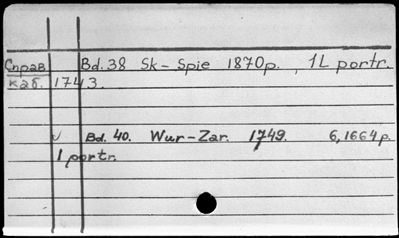 Справ. Bd. 38 Sk - Spie 1870p., 1L portr.
каб. 1743.
√ Bd. 40. Wur-Zar. 1749. 6,1664p.
1 portr.